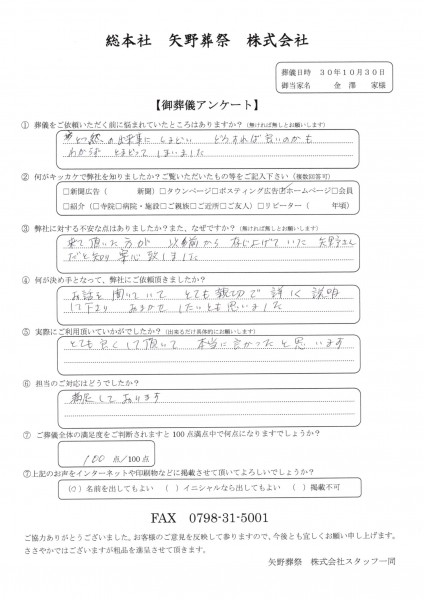 総本社　矢野葬祭　株式会社
葬儀日時　３０年１０月３０日
御当家名　金　澤　家様
【御葬儀アンケート】
① 葬儀をご依頼いただく前に悩まれていたところはありますか？（無ければ無しとお願いします）
突然の出来事にしまどい　どうすれば良いのかも
わからず　とまどって しまいました
② 何がキッカケで弊社を知りましたか？ご覧いただいたもの等をご記入下さい（複数回答可）
□新聞広告（　　　　新聞）□タウンページ□ポスティング広告☑ホームページ□会員
□紹介（□寺院□病院・施設□ご親族□ご近所□ご友人）□リピーター（　　　年頃）
③ 弊社に対する不安な点はありましたか？また、なぜですか？（無ければ無しとお願いします）
来て頂いた方が　以前から 存じ上げていた 矢野さん
だと知り 安心致しました
④ 何が決め手となって、弊社にご依頼頂きましたか？
お話を聞いていて　とても親切で 詳しく 説明
して下さり　おまかせ したいとも思いました
⑤ 実際にご利用頂いていかがでしたか？（出来るだけ具体的にお願いします）
とても良くして頂いて　本当に良かったと思います
⑥ 担当のご対応はどうでしたか？
満足しております
⑦ ご葬儀全体の満足度をご判断されますと 100 点満点中で何点になりますでしょうか？
100 点/100点
⑦上記のお声をインターネットや印刷物などに掲載させて頂いてよろしいでしょうか？
（○）名前を出してもよい　（　）イニシャルなら出してもよい　（　）掲載不可
FAX　0798-31-5001
ご協力ありがとうございました。お客様のご意見を反映して参りますので、今後とも宜しくお願い申し上げます。
ささやかではございますが粗品を進呈させて頂きます。
矢野葬祭　株式会社スタッフ一同